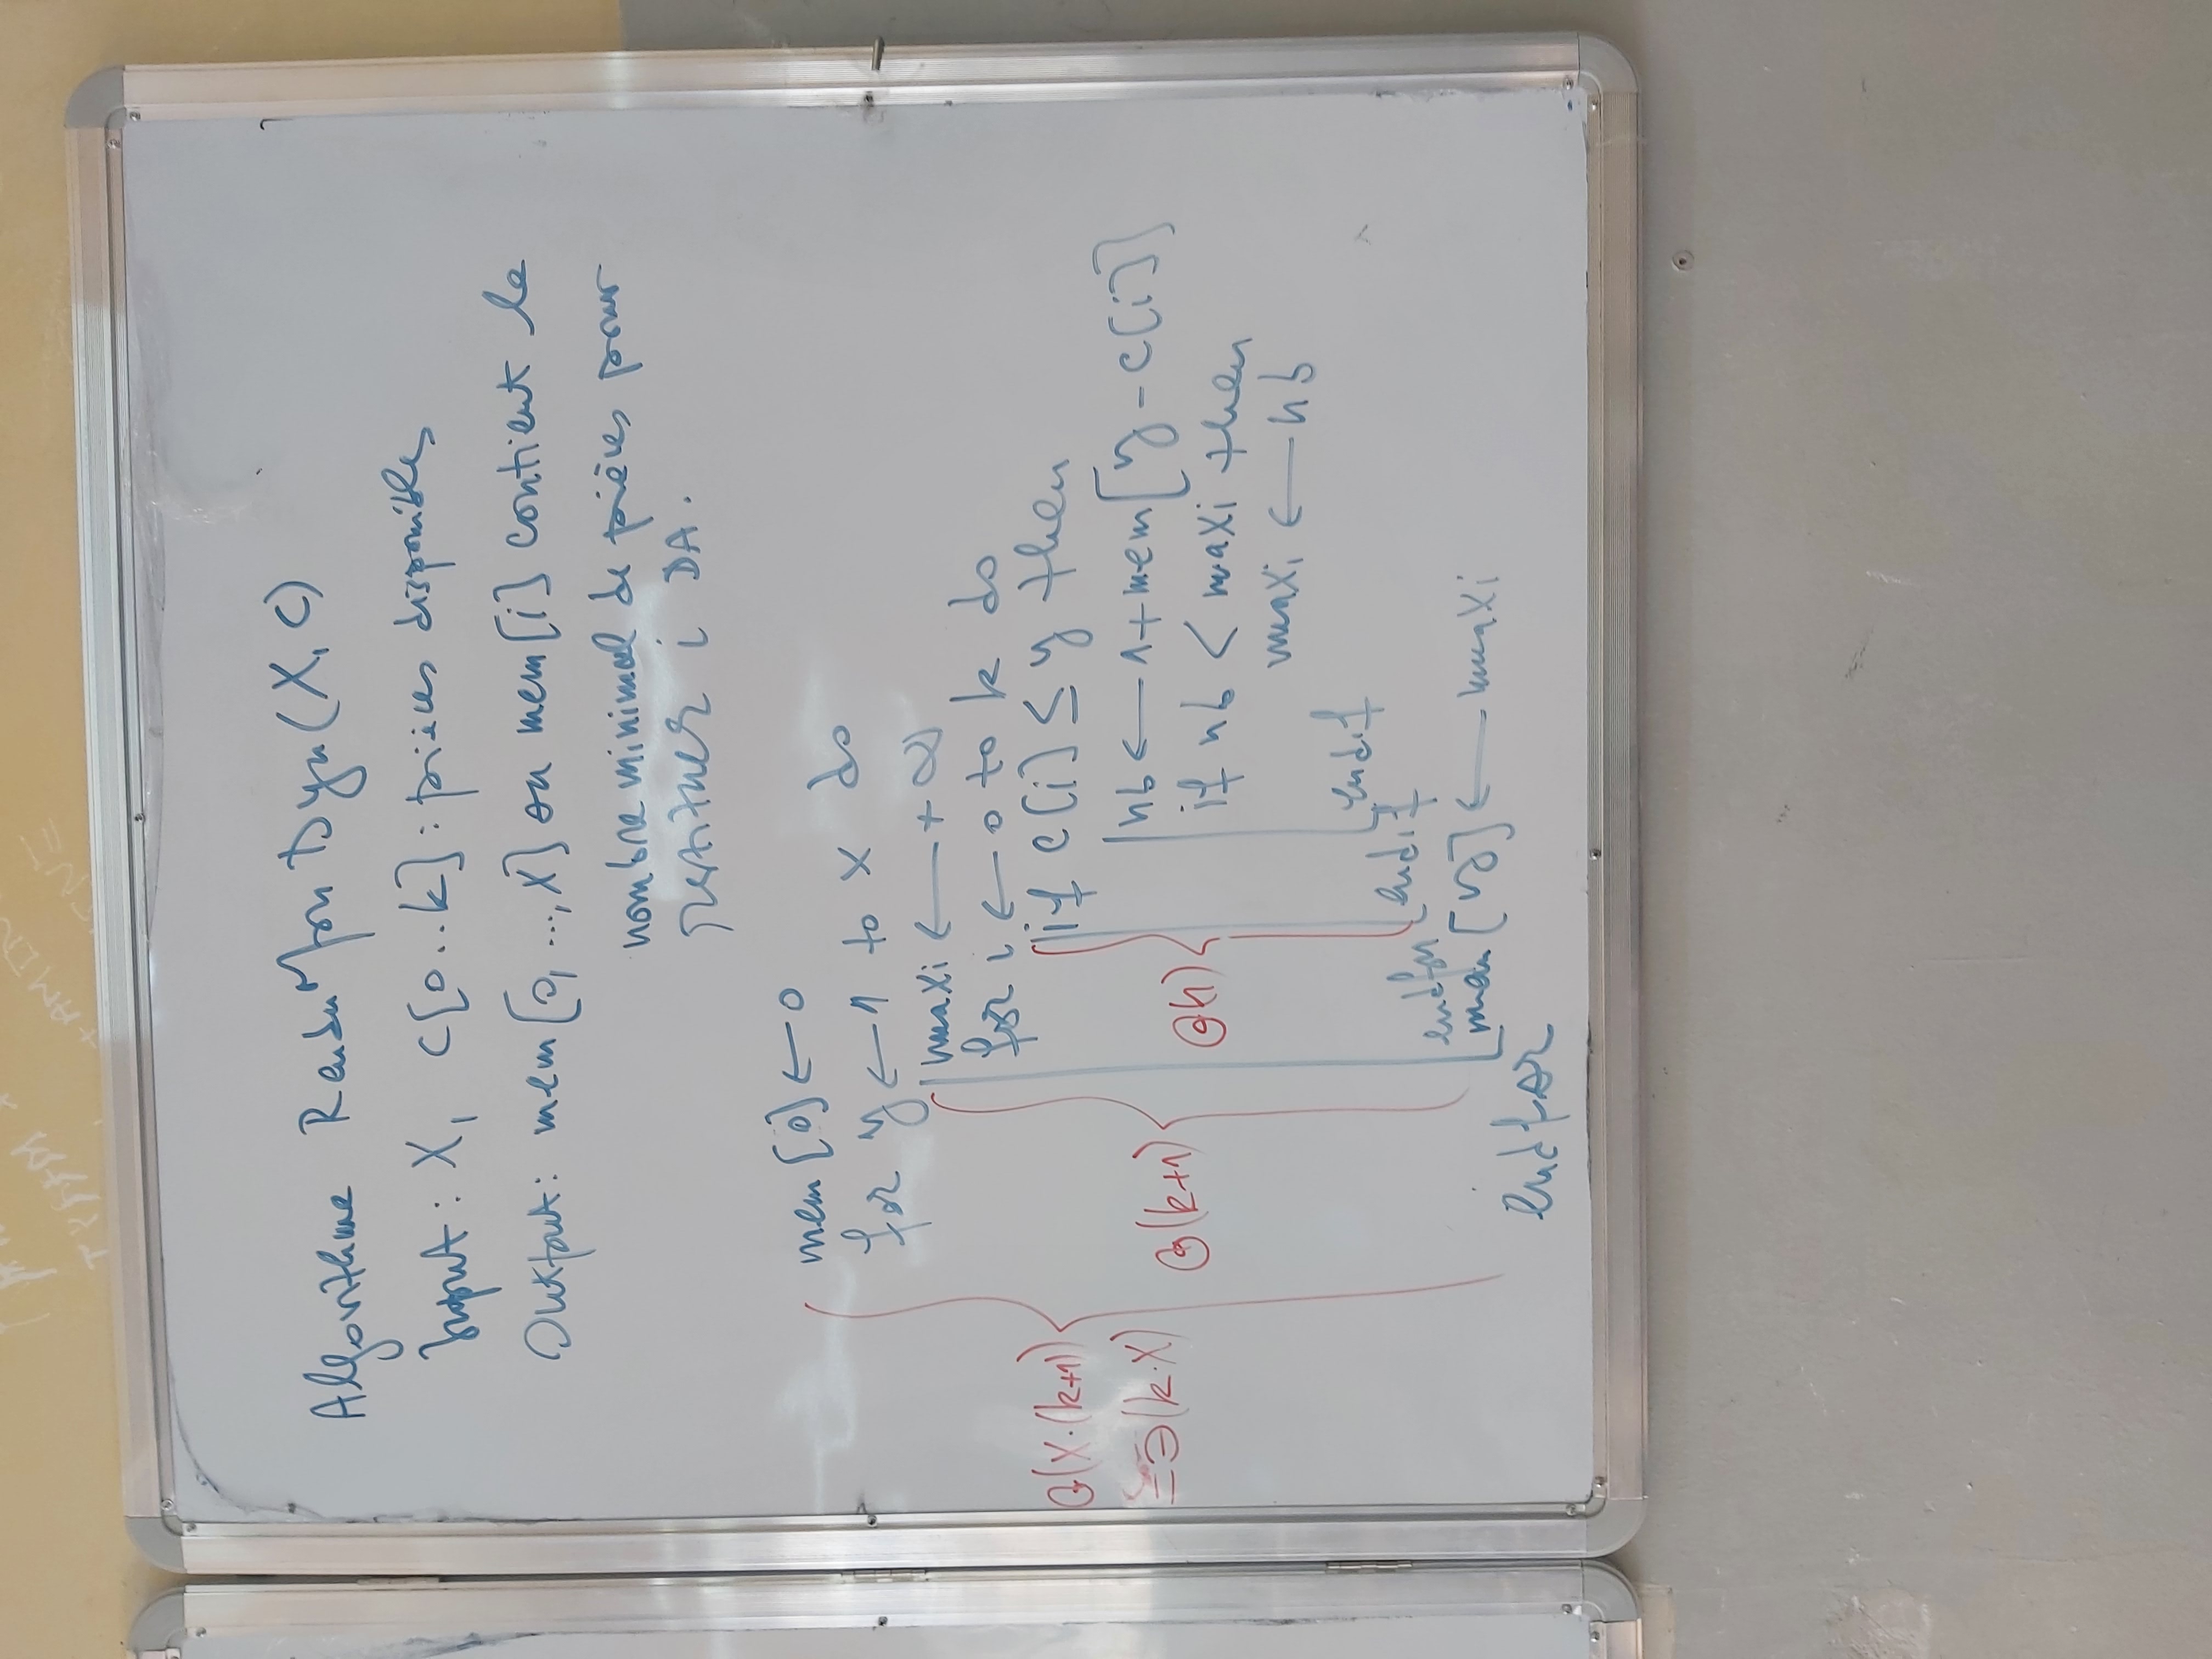 Algorithme RenduMon Dyn(X, C)
Input: X, C[0..k]: pièces disponibles
Output: mem[0, ..., X] ou mem[i] contient le
nombre minimal de pièces pour
restituer i DA.
mem[0] ← 0
for y ← 1 to X do
maxi ← +∞
for i ← 0 to k do
if C[i] ≤ y then
nb ← 1+mem[y - C[i]]
if nb < maxi then
maxi ← nb
endif
endif
endfor
mem[y] ← maxi
endfor
Θ(X·(k+1))
= Θ(k·X)
Θ(k+1)
Θ(1)